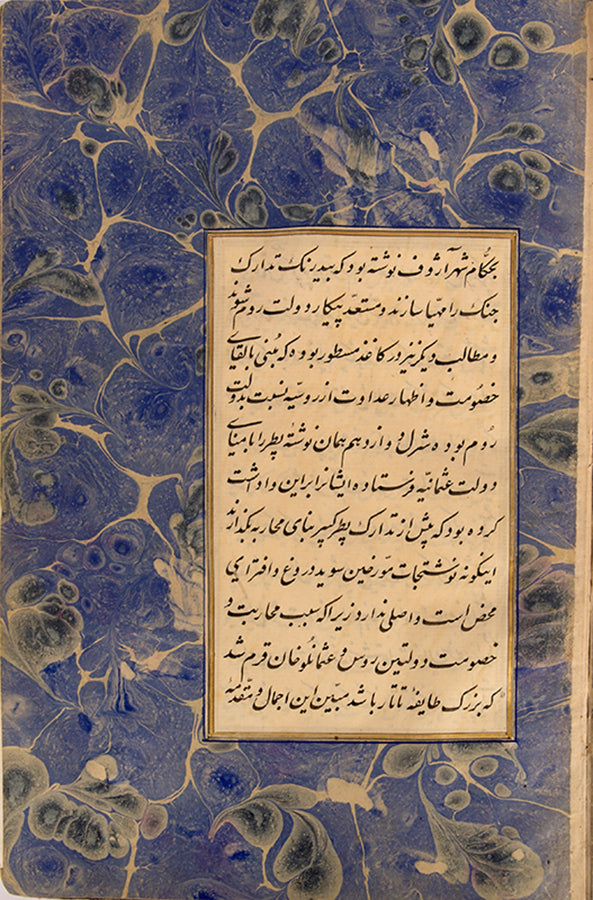 بحکام شهر آزوف نوشته بود که بیدرنک تدارک
جنک را مهیا سازند و مستعد پیکار دولت روم شوند
و مطالب دیکر نیز در کاغذ مسطور بوده که مبنی بالقای
خصومت و اظهار عداوت از روسیه نسبت بدولت
روم بوده شرل دوازدهم همان نوشتهٔ پطر را بامنای
دولت عثمانیه فرستاده ایشانرا بر این واداشت
کروه بود که پیش از تدارک پطر کبیر بنای محاربه بکذارند
اینکونه نوشتجات مورخین سوید دروغ و افترای
محض است و اصلی ندارد زیرا که سبب محاربت و
خصومت دولتین روس و عثمانلو خان قرم شد
که بزرک طایفهٔ تاتار باشد مبین این اجمال و مقدمه